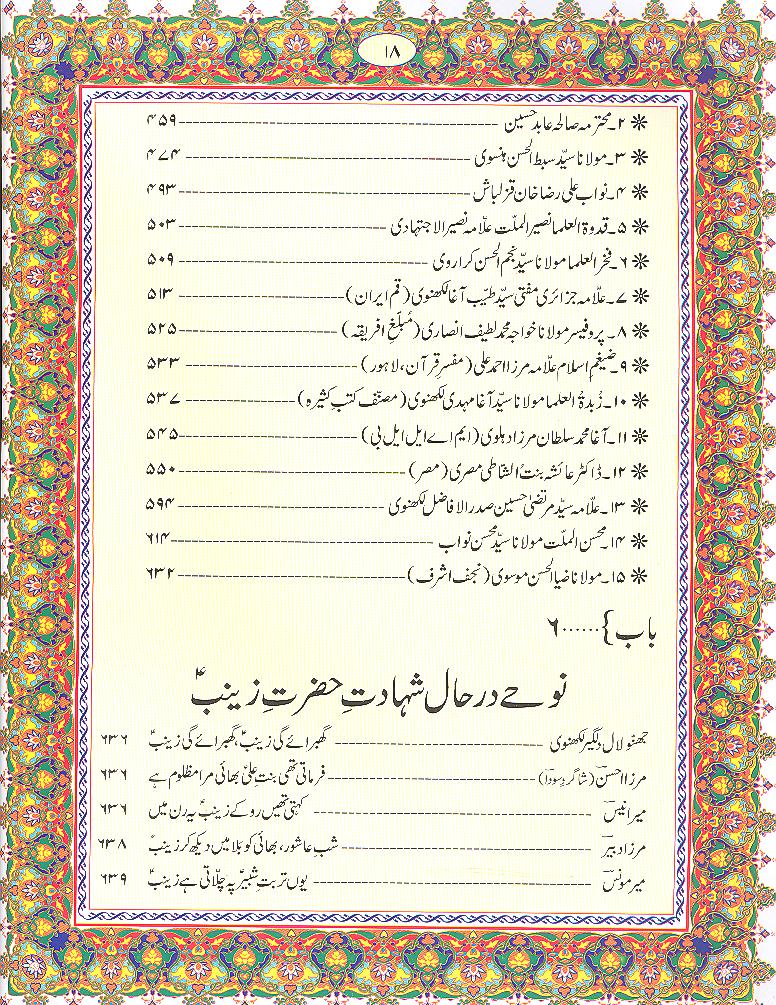 ۱۸
۲۔محترمہ صالحہ عابد حسین ------ ۴۵۹
۳۔مولانا سیّد سبط الحسن ہنسوی ------ ۴۷۴
۴۔نواب علی رضا خان قزلباش ------ ۴۹۳
۵۔قدوۃ العلما نصیر الملت علّامہ نصیر الاجتہادی ------ ۵۰۳
۶۔فخر العلما مولانا سیّد نجم الحسن کراروی ------ ۵۰۹
۷۔علّامہ جزائری مفتی سیّد طیّب آغا لکھنوی (قم ایران) ------ ۵۱۳
۸۔پروفیسر مولانا خواجہ محمد لطیف انصاری (مُبلّغِ افریقہ) ------ ۵۲۵
۹۔ضیغم اسلام علّامہ مرزا احمد علی (مفسرِ قرآن، لاہور) ------ ۵۳۳
۱۰۔زُبدۃُ العلما مولانا سیّد آغا مہدی لکھنوی (مصنّف کتبِ کثیرہ) ------ ۵۳۷
۱۱۔آغا محمد سلطان مرزا دہلوی (ایم اے ایل ایل بی) ------ ۵۴۵
۱۲۔ڈاکٹر عائشہ بنت الشاطی مصری (مصر) ------ ۵۵۰
۱۳۔علّامہ سیّد مرتضیٰ حسین صدر الافاضل لکھنوی ------ ۵۹۴
۱۴۔محسن الملّت مولانا سیّد محسن نواب ------ ۶۱۴
۱۵۔مولانا ضیا الحسن موسوی (نجف اشرف) ------ ۶۳۲
باب }......۶
نوحے در حال شہادتِ حضرتِ زینبؑ
جھنو لال دلگیر لکھنوی ------ گھبرائے گی زینبؑ، گھبرائے گی زینبؑ ۶۳۶
مرزا احسن (شاگردِ سودا) ------ فرماتی تھی بنتِ علیؑ بھائی مرا مظلوم ہے ۶۳۶
میر انیس ------ کہتی تھیں رو کے زینبؑ یہ رن میں ۶۳۶
مرزا دبیر ------ شبِ عاشور، بھائی کو بلا میں دیکھ کر زینبؑ ۶۳۸
میر مونس ------ یوں تربتِ شبیرؑ پہ چلّاتی ہے زینبؑ ۶۳۹